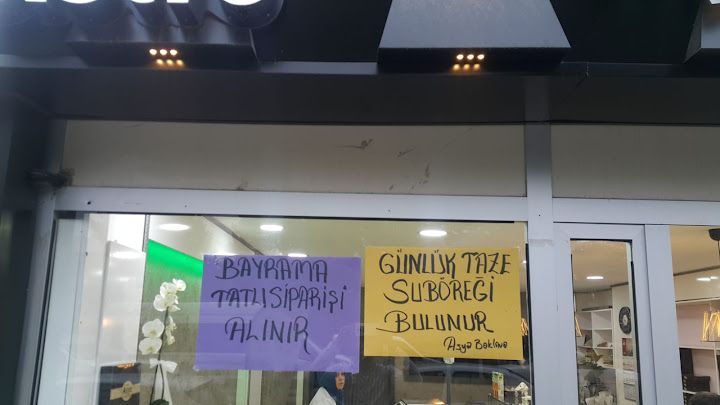 BAYRAMA
TATLI SİPARİŞİ
ALINIR
GÜNLÜK TAZE
SUBÖREĞİ
BULUNUR
Asya Baklava